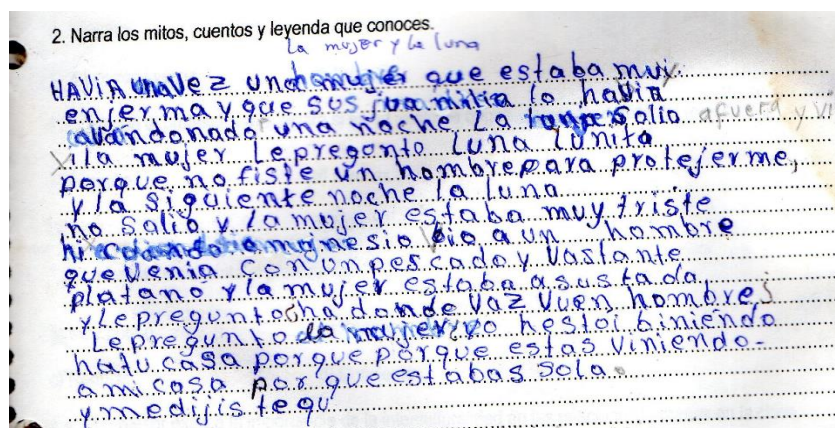 2. Narra los mitos, cuentos y leyenda que conoces.
la mujer y la luna
HAVIA UNAVEZ UNA mujer que estaba mui
enferma y que sus familia lo havia
avandonado una noche La salio afuera y vi
i la mujer Le pregonto Luna Lunita
porque no fiste un hombre para protejerme,
y la siguiente noche la luna
no salio y la mujer estaba muy triste
hi cuando amanesio bio a un hombre
que venia con un pescado y vastante
platano y la mujer estaba asustada
y Le pregunto cha donde vaz vuen hombre
Le pregunto la mujer yo hestoi biniendo
hatu casa porque porque estas viniendo-
ami casa por que estabas sola.
y me dijis te qu